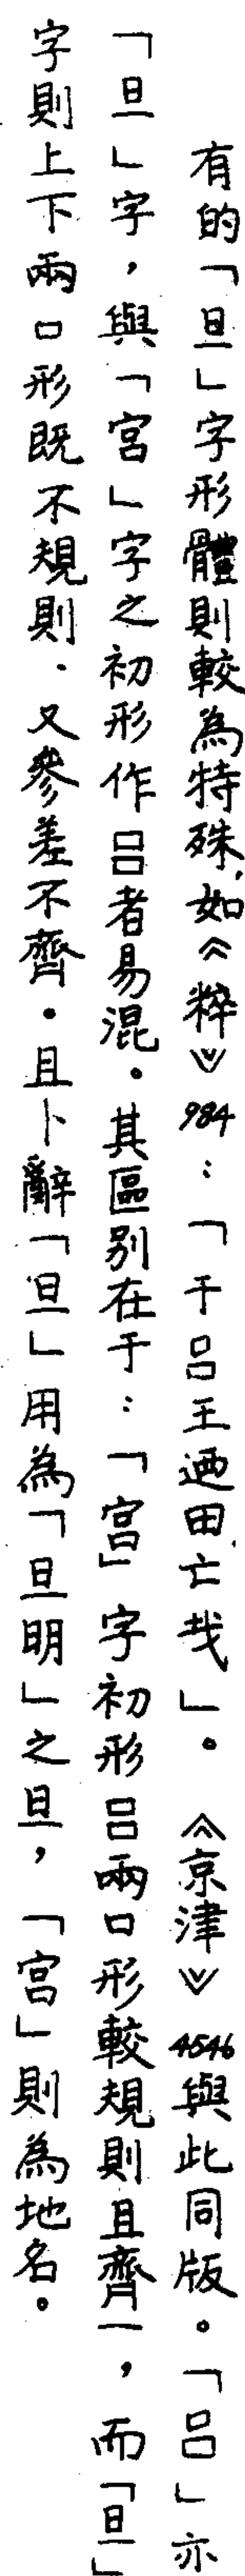 有的「旦」字形體則較為特殊，如《粹》984：「于吕王迺田亡𢦏」。《京津》4546與此同版。「吕」亦
「旦」字，與「宮」字之初形作吕者易混。其區别在于：「宮」字初形吕兩口形較規則且齊一，而「旦」
字則上下兩口形既不規則．又參差不齊．且卜辭「旦」用為「旦明」之旦，「宮」則為地名。